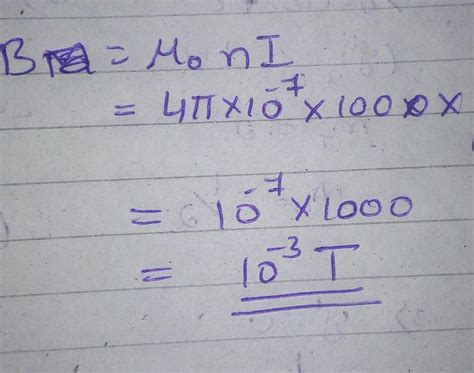 B = μ₀ n I
= 4π×10⁻⁷ × 1000 ×
= 10⁻⁷ × 1000
= 10⁻³ T